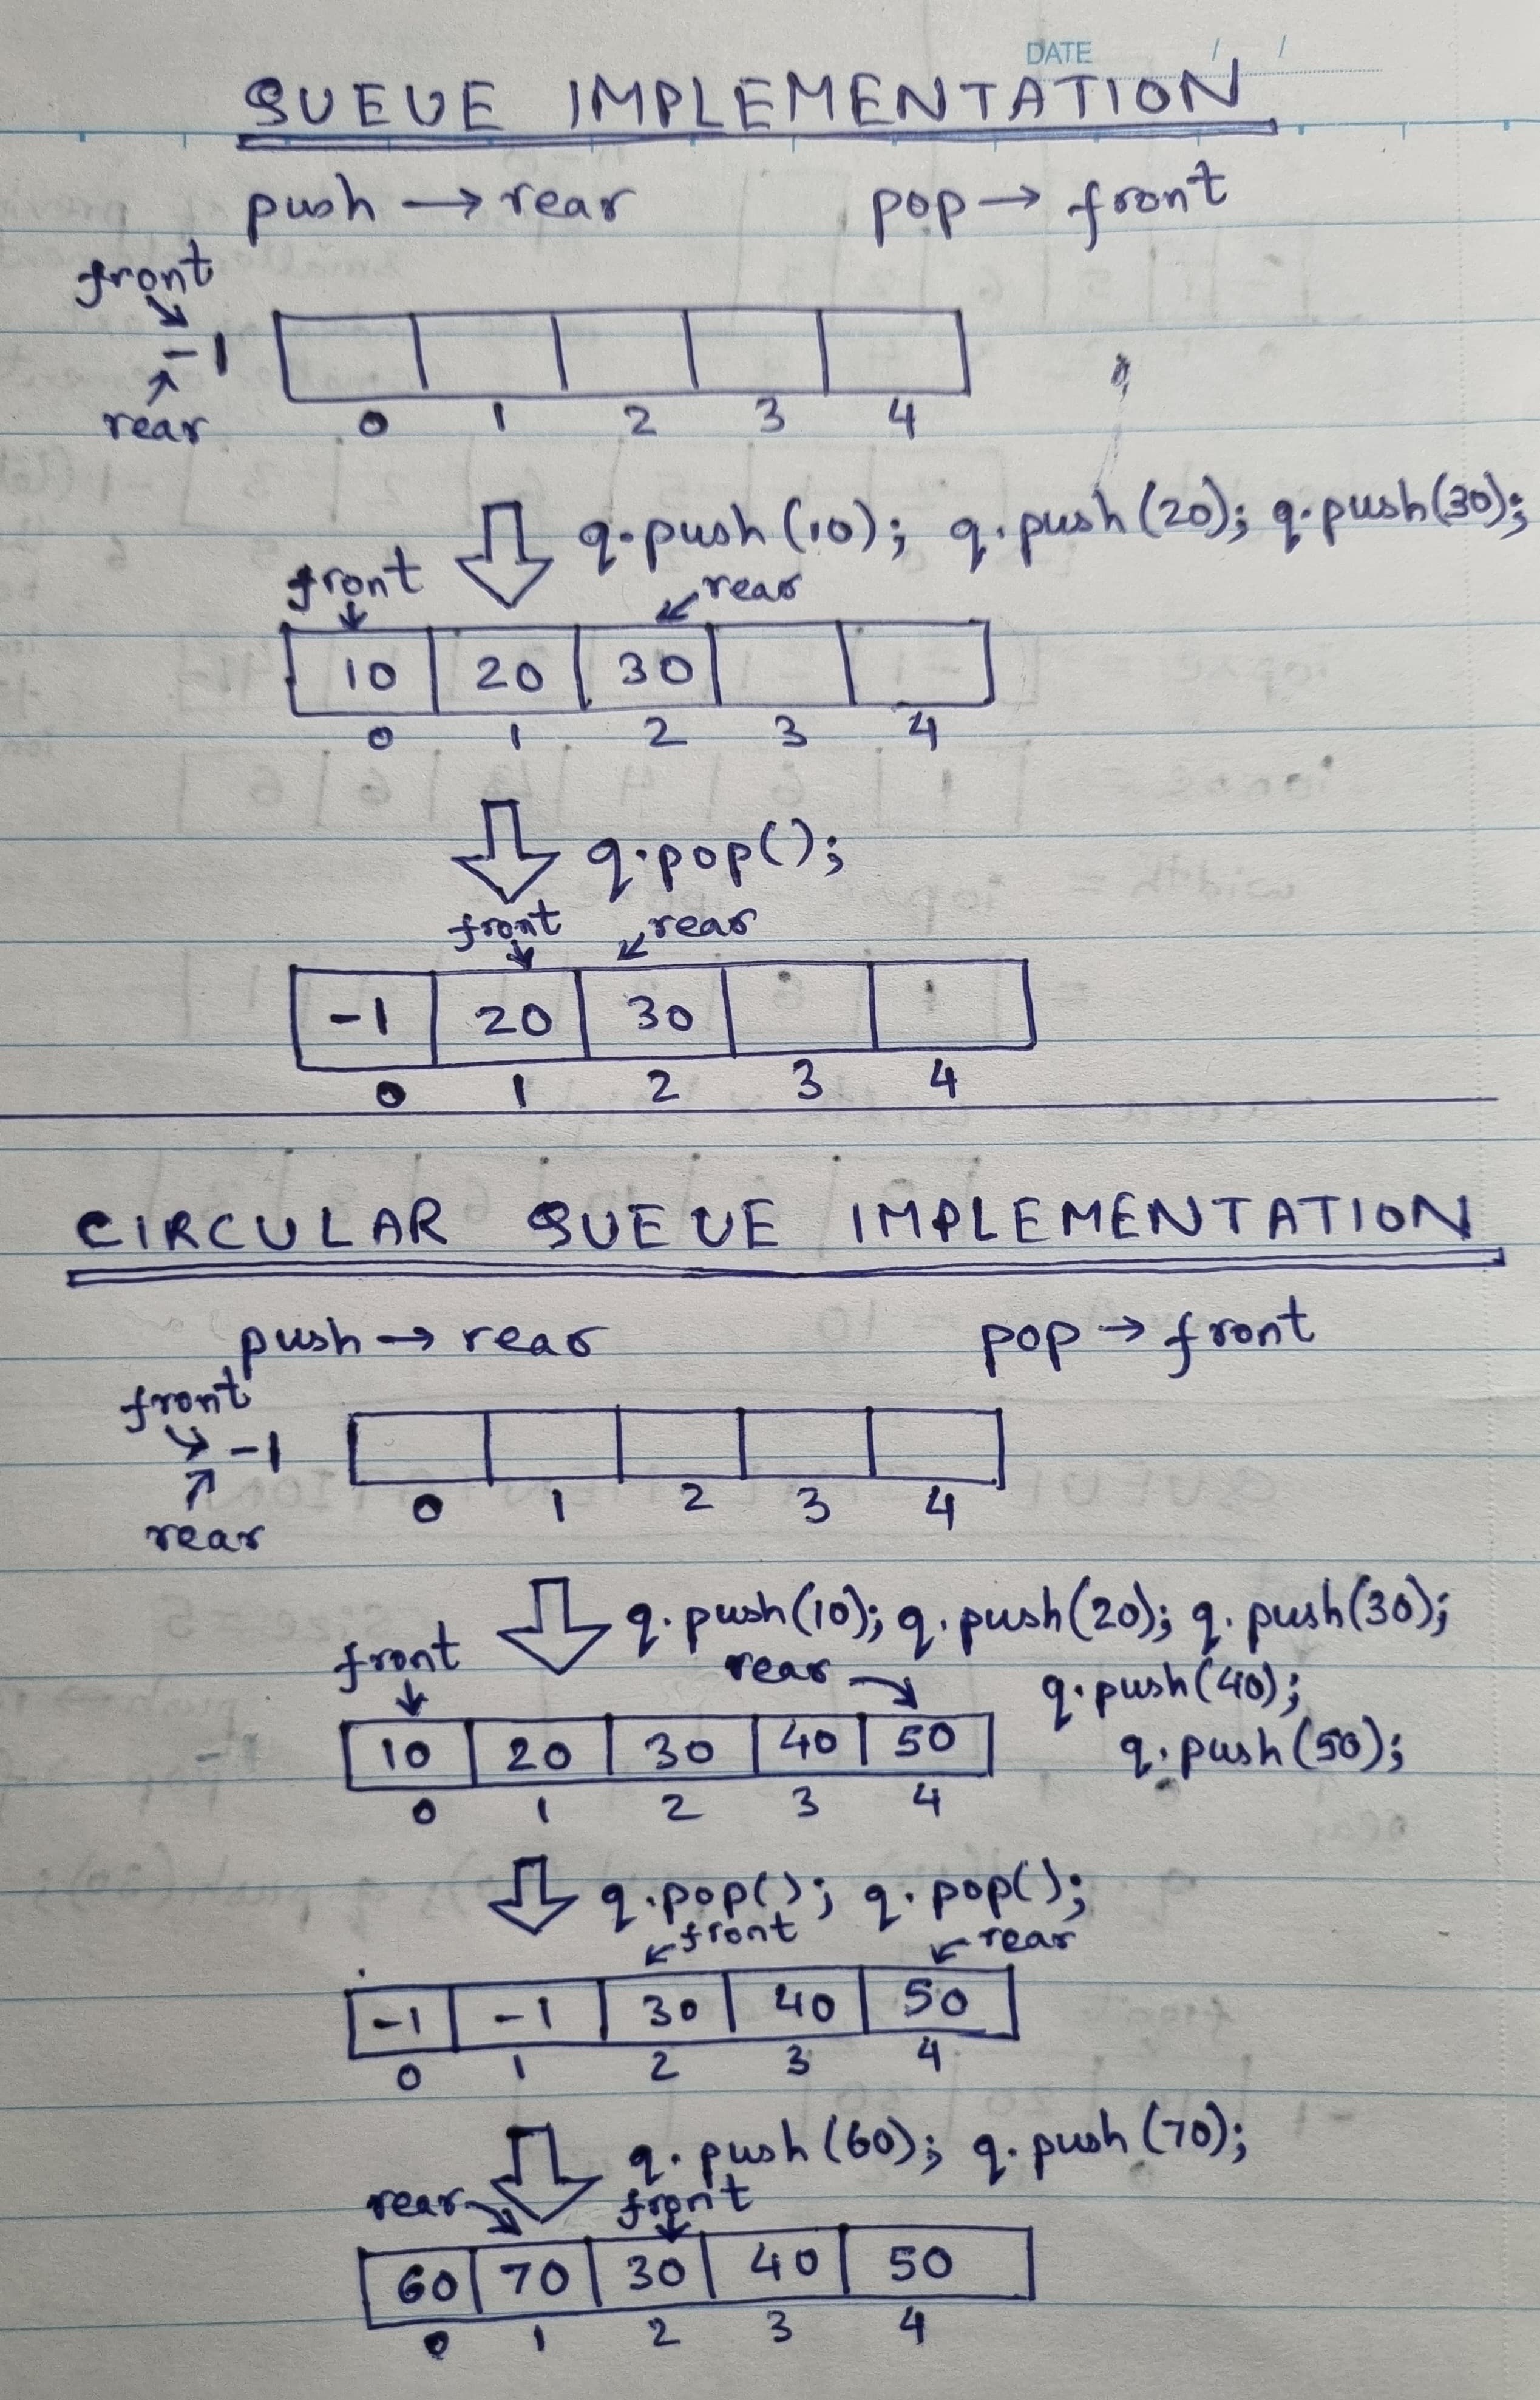 DATE / /
QUEUE IMPLEMENTATION
push → rear pop → front
front
-1
rear
0 1 2 3 4
q.push(10); q.push(20); q.push(30);
front rear
10 20 30
0 1 2 3 4
q.pop();
front rear
-1 20 30
0 1 2 3 4
CIRCULAR QUEUE IMPLEMENTATION
push → rear pop → front
front
-1
rear
0 1 2 3 4
q.push(10); q.push(20); q.push(30);
front rear q.push(40);
10 20 30 40 50 q.push(50);
0 1 2 3 4
q.pop(); q.pop();
front rear
-1 -1 30 40 50
0 1 2 3 4
q.push(60); q.push(70);
rear front
60 70 30 40 50
0 1 2 3 4